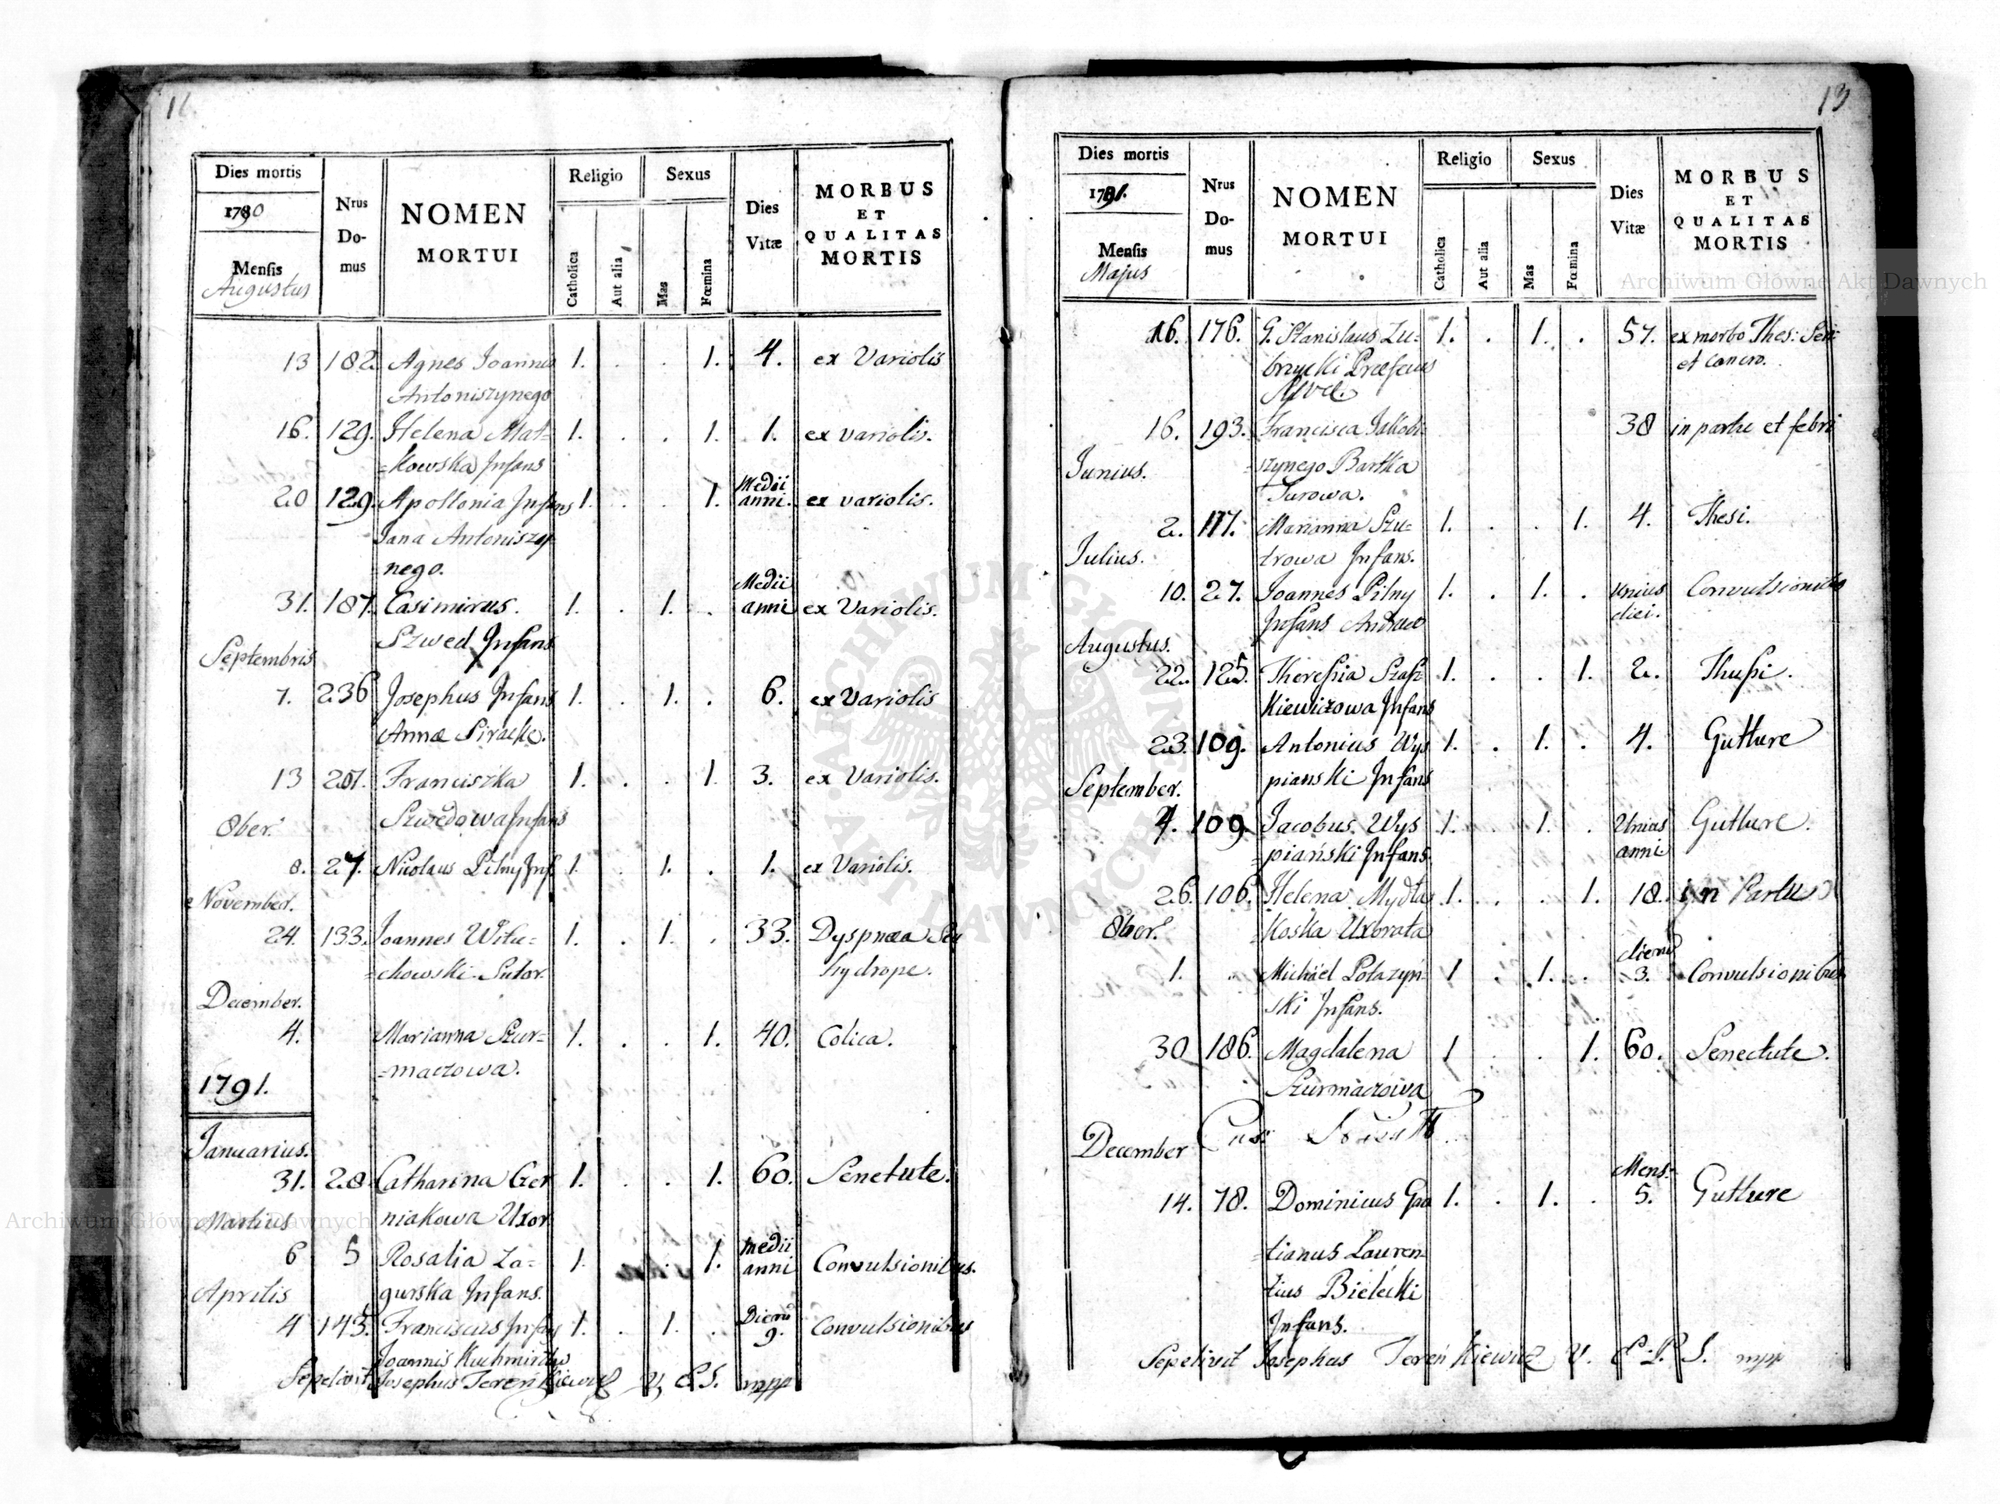 13
Dies mortis
1790
Mensis
Augustus
Nrus
Do-
mus
NOMEN
MORTUI
Religio
Catholica
Aut alia
Sexus
Mas
Fœmina
Dies
Vitæ
MORBUS
ET
QUALITAS
MORTIS
13 182. Agnes Joannis 1. . . 1. 4. ex Variolis
Antoniszynego
16. 129. Helena Mat= 1. . . 1. 1. ex variolis.
=kowska Infans
20 129. Apollonia Infans 1. . . 1. Medii anni. ex variolis.
Jana Antoniszy
nego.
31. 187. Casimirus. 1. . 1. . Medii anni ex Variolis.
Szwed Infans
Septembris
7. 236 Josephus Infans 1. . 1. . 6. ex Variolis
Annæ
13 201. Franciszka 1. . . 1. 3. ex Variolis.
Szwedowa Infans
8ber.
8. 27. Nicolaus Pilny Inf. 1. . 1. . 1. ex Variolis.
November.
24. 133. Joannes Wilu= 1. . 1. . 33. Dyspnæa
=chowski Sutor. hydrope.
December.
4. Marianna Szur= 1. . . 1. 40. Colica.
=maczowa.
1791.
Januarius.
31. 28 Catharina Ger 1. . . 1. 60. Senetute.
niakowa Uxor.
Martius
6 5 Rosalia Za= 1. 1. Medii anni Convulsionibus.
gurska Infans.
Aprilis
4 145. Franciscus Infans 1. . 1. . Dierū 9. Convulsionibus
Joannis
Sepelivit Josephus Tereńkiewicz mpp
Dies mortis
1791.
Mensis
Majus
Nrus
Do-
mus
NOMEN
MORTUI
Religio
Catholica
Aut alia
Sexus
Mas
Fœmina
Dies
Vitæ
MORBUS
ET
QUALITAS
MORTIS
16. 176. G. Stanislaus Zu= 1. . 1. . 57. ex morbo Thesi
brzycki et cancro.
16. 193. Francisca Jakobi= 38 in partu et febri
szynego Bartka
Junius.
Turowa.
2. 117. Marianna Szu= 1. . . 1. 4. Thesi.
trowa Infans.
Julius.
10. 27. Joannes Pilny 1. . 1. . Unius diei. Convulsionibus
Infans
Augustus.
22. 125. Theresia Stasz 1. . . 1. 2. Thusi.
kiewiczowa Infans
23. 109. Antonius Wys 1. . 1. . 4. Gutture
pianski Infans
September.
4. 109 Jacobus Wys 1. . 1. . Unius anni Gutture.
piański Infans.
26. 106. Helena Mydła 1. . . 1. 18. in Partu
koska Uxorata
8ber.
1. . Michael Potazyń 1 . 1. . dierū 3. Convulsionibus
ski Infans.
30 186. Magdalena 1 . . 1. 60. Senectute.
Szurmaczowa
December
14. 78. Dominicus Gra 1. . 1. . Mens. 5. Gutture
=tianus Lauren
tius Bielecki
Infans.
Sepelivit Josephus Tereńkiewicz mpp
ARCHIWUM GŁÓWNE AKT DAWNYCH
Archiwum Główne Akt Dawnych
Archiwum Główne Akt Dawnych